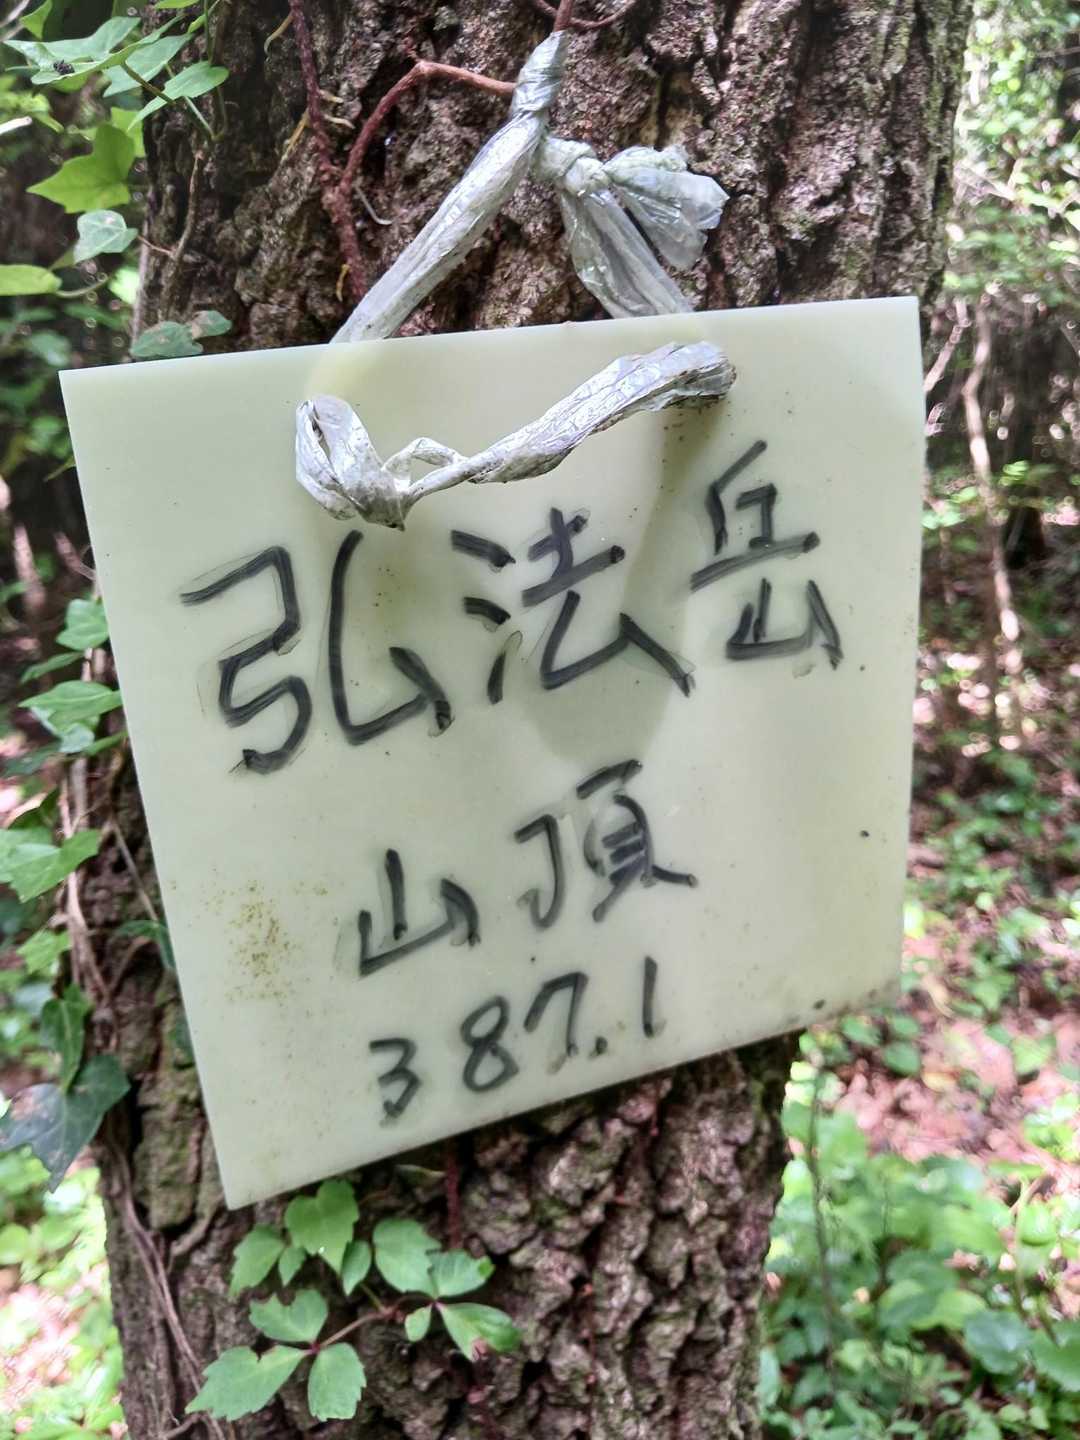 弘法岳
山頂
387.1